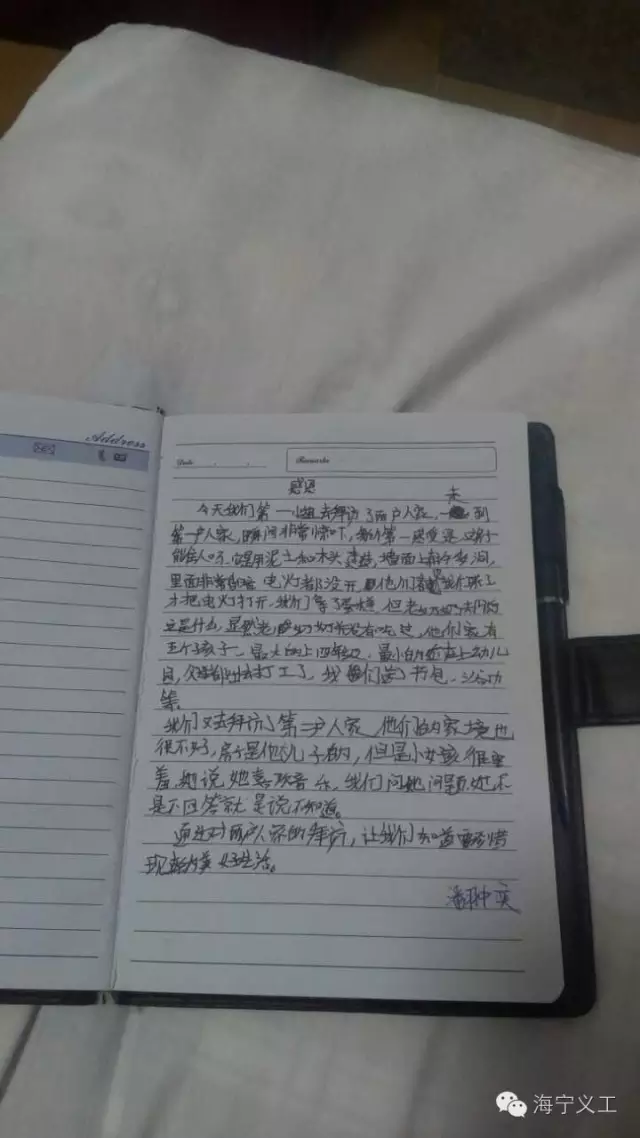 Address
Date
Remarks
感悟
今天我们第一小组去拜访了两户人家,一走到
第一户人家,瞬间非常惊吓,第一感觉是这
能住人吗,它是用泥土和木头建造,墙面上有个多洞,
里面非常的暗,电灯都没开,他们看我们来了
才把电灯打开,我们等了蛋糕,但老奶奶问
这是什么,显然老奶奶并没有吃过,他们家有
五个孩子,最大的上四年级,最小的还在上幼儿
园,父母都出去打工了,我们送了书包、
等。
我们又去拜访了第二户人家,他们的家境也
很不好,房子是他儿子的,但是小女孩很害
羞,她说她喜欢音乐,我们问她问题她不
是不回答就是说不知道。
通过对两户人家的拜访,让我们知道要珍惜
现在的美好生活。
潘翀奕
海宁义工